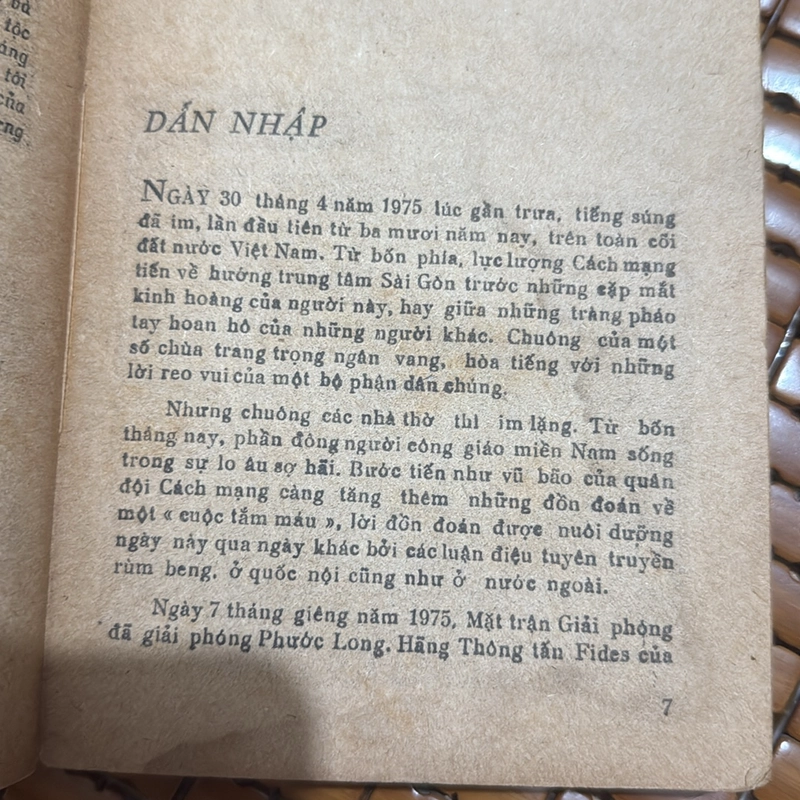 bà
tộc
áng
tới
của
ơng
DẤN NHẬP
NGÀY 30 tháng 4 năm 1975 lúc gần trưa, tiếng súng
đã im, lần đầu tiên từ ba mươi năm nay, trên toàn cõi
đất nước Việt Nam. Từ bốn phía, lực lượng Cách mạng
tiến về hướng trung tâm Sài Gòn trước những cặp mắt
kinh hoàng của người này, hay giữa những tràng pháo
tay hoan hô của những người khác. Chuông của một
số chùa trang trọng ngân vang, hòa tiếng với những
lời reo vui của một bộ phận dân chúng.
Nhưng chuông các nhà thờ thì im lặng. Từ bốn
tháng nay, phần đông người công giáo miền Nam sống
trong sự lo âu sợ hãi. Bước tiến như vũ bão của quân
đội Cách mạng càng tăng thêm những đồn đoán về
một « cuộc tắm máu », lời đồn đoán được nuôi dưỡng
ngày này qua ngày khác bởi các luận điệu tuyên truyền
rùm beng, ở quốc nội cũng như ở nước ngoài.
Ngày 7 tháng giêng năm 1975, Mặt trận Giải phóng
đã giải phóng Phước Long. Hãng Thông tấn Fides của
7